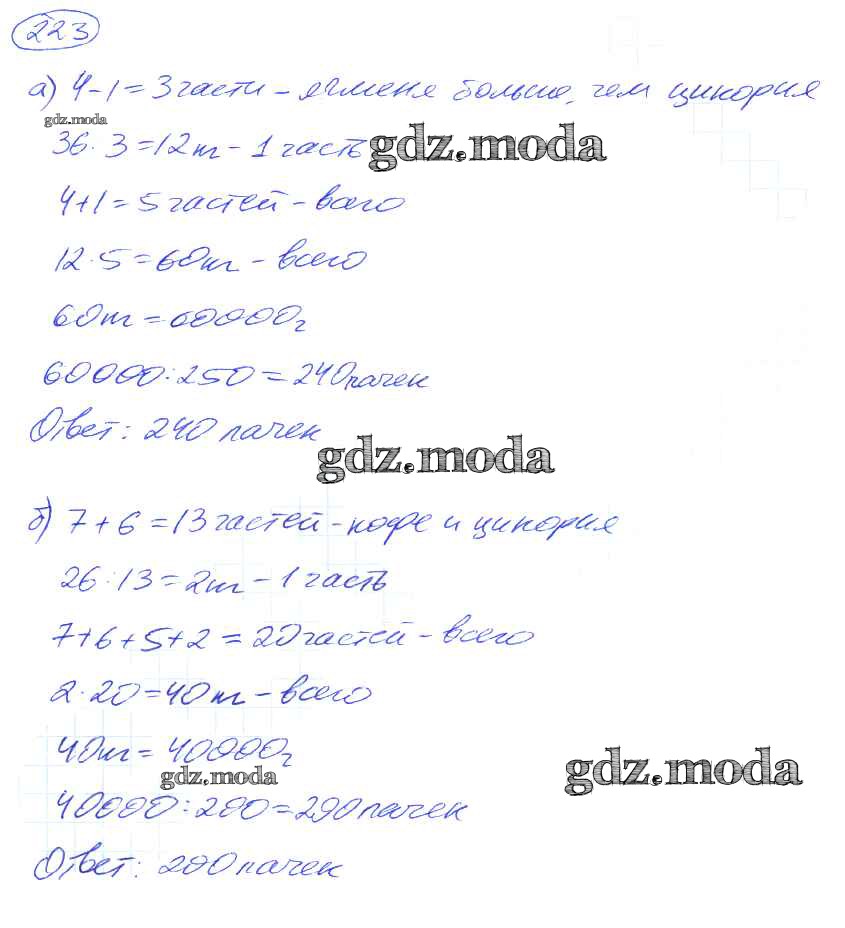 223
а) 4-1=3 части - ячменя больше, чем цикория
gdz.moda
36:3=12кг - 1 часть gdz.moda
4+1=5 частей - всего
12·5=60кг - всего
60кг=60000г
60000:250=240 пачек
Ответ: 240 пачек
gdz.moda
б) 7+6=13 частей - кофе и цикория
26:13=2кг - 1 часть
7+6+5+2=20 частей - всего
2·20=40кг - всего
40кг=40000г
gdz.moda gdz.moda
40000:200=200 пачек
Ответ: 200 пачек